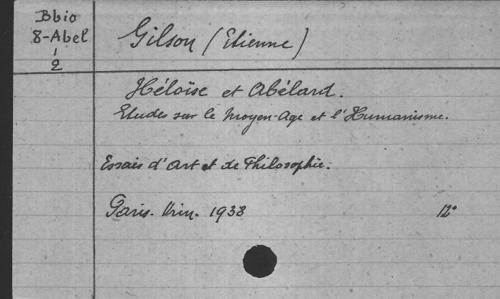 Bbio
8-Abel
1
2
Gilson (Etienne)
Héloïse et Abélard.
Etudes sur le Moyen-Age et l'Humanisme.
Essais d'Art et de Philosophie.
Paris. Vrin. 1938 12°